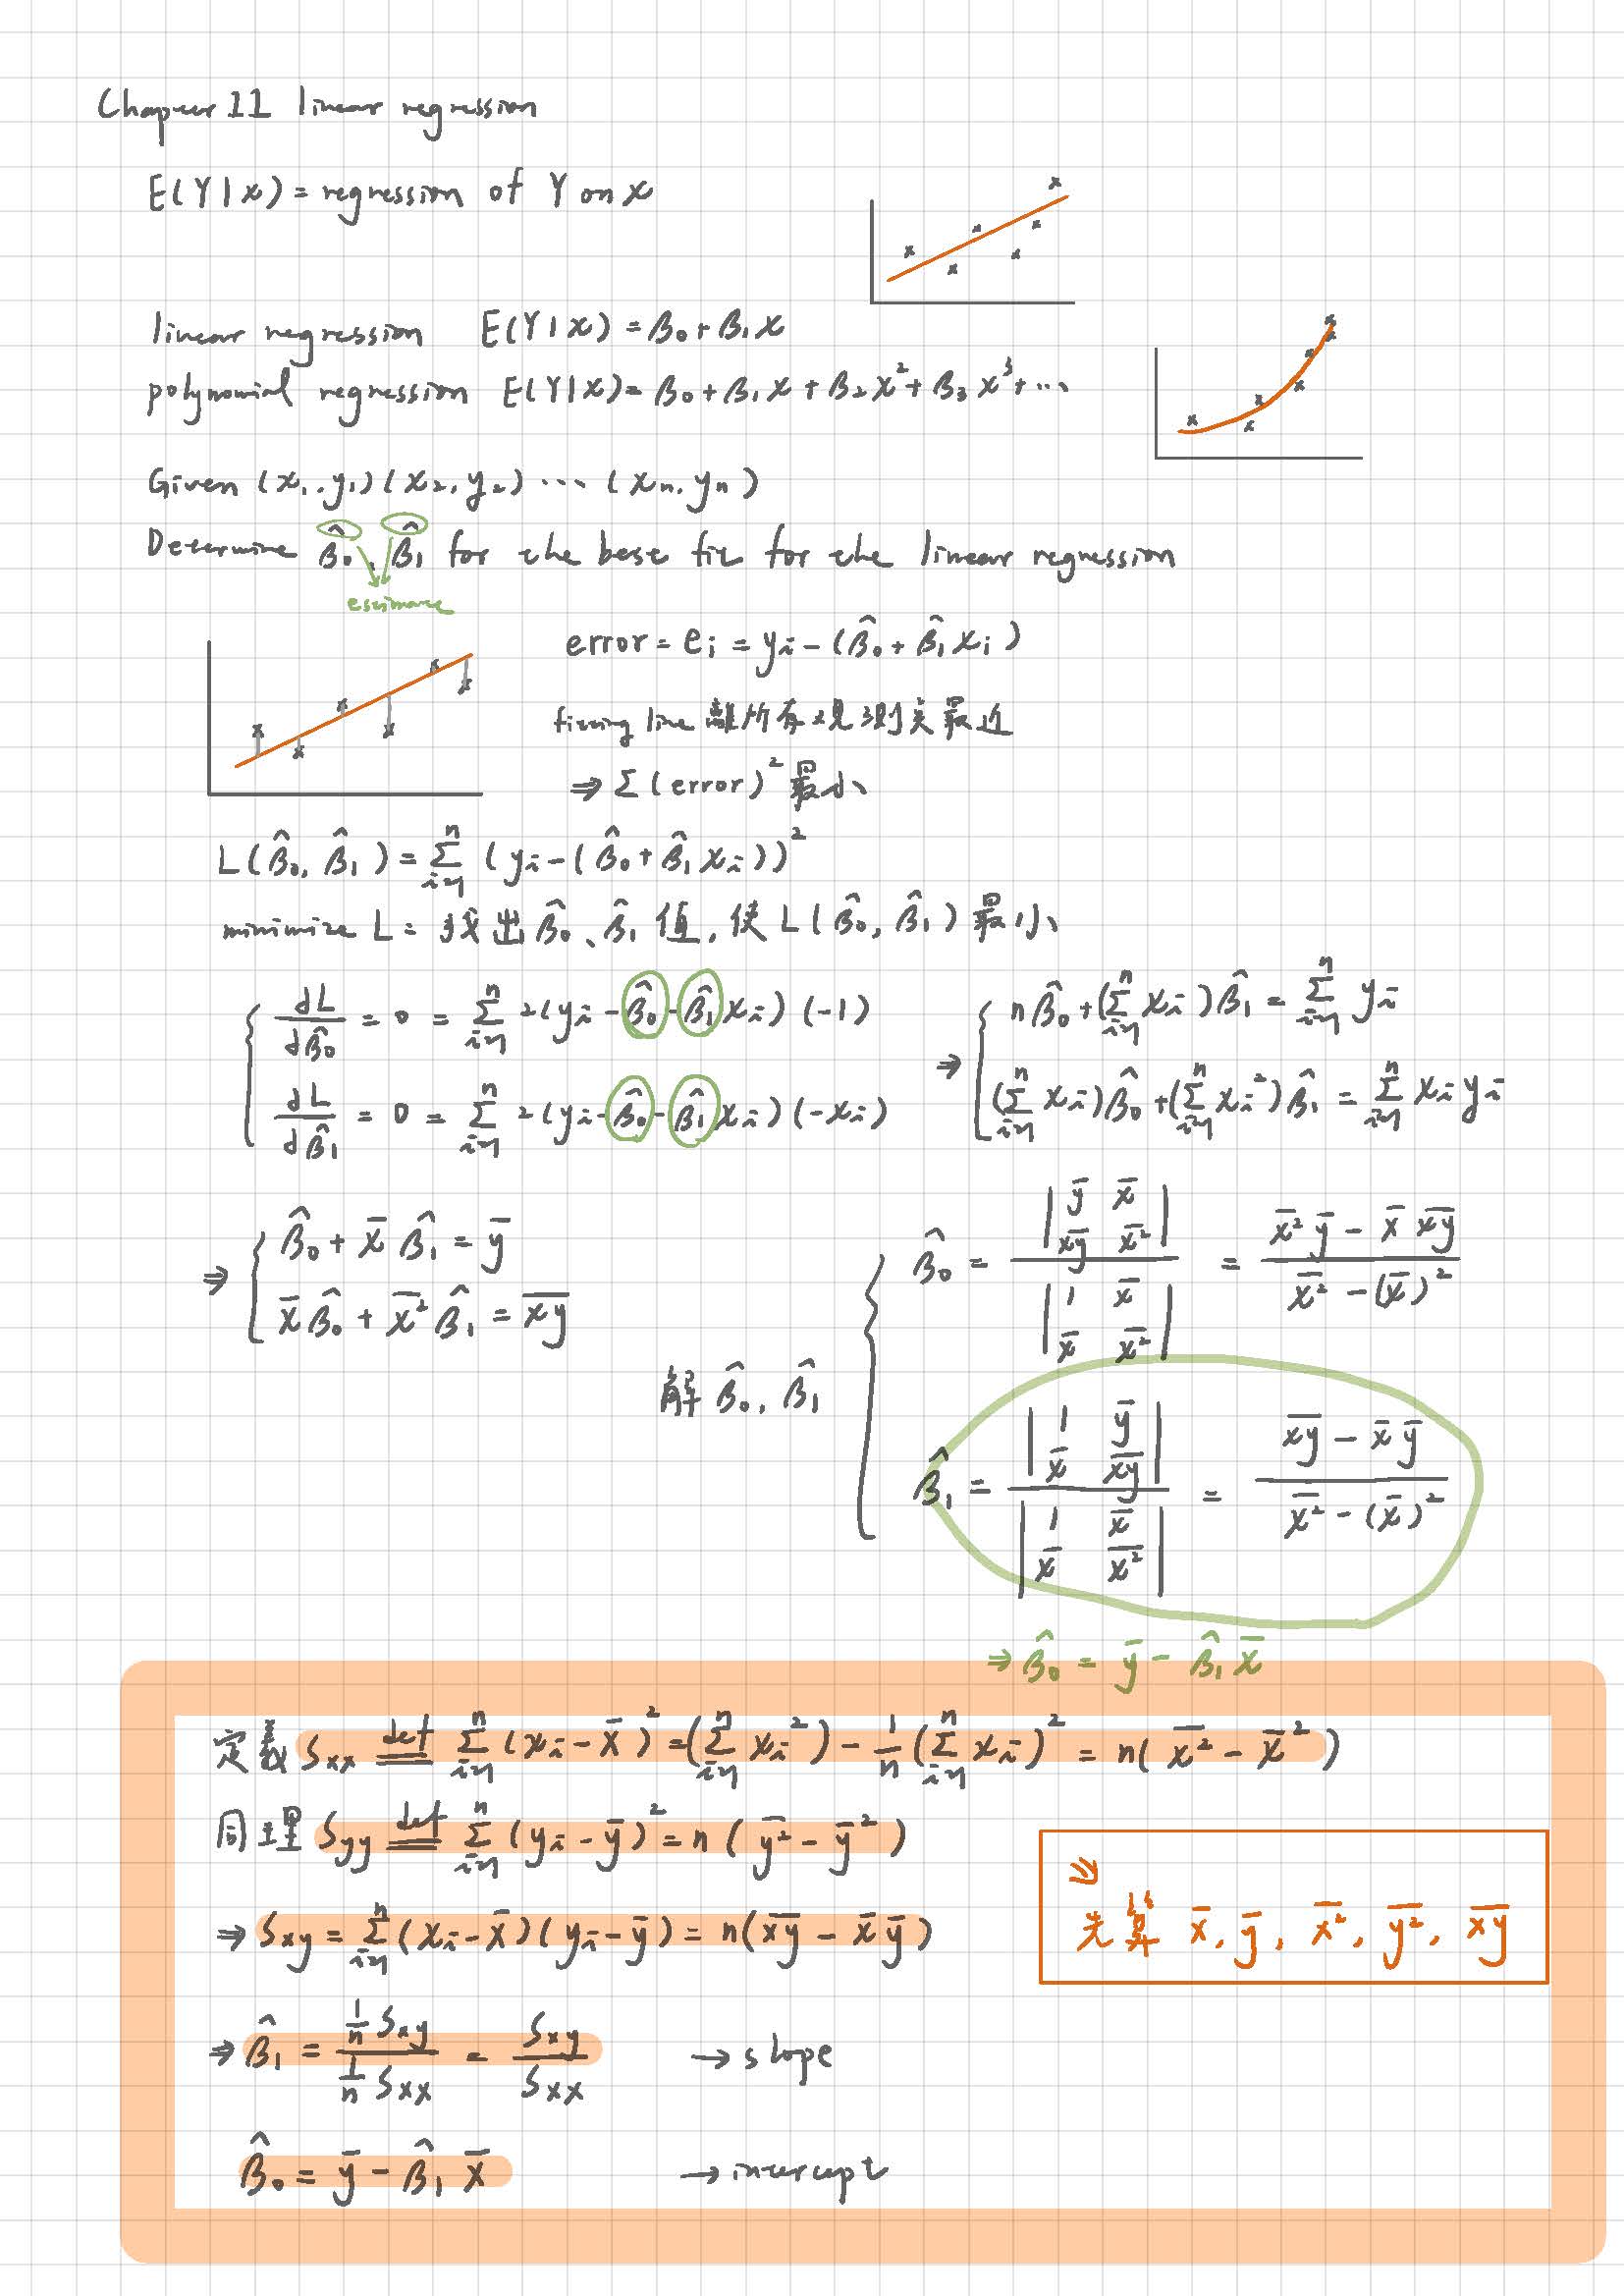 Chapter 11 linear regression
E(Y|x) = regression of Y on x
linear regression E(Y|x) = β₀ + β₁x
polynomial regression E(Y|x) = β₀ + β₁x + β₂x² + β₃x³ + ⋯
Given (x₁, y₁) (x₂, y₂) ⋯ (xₙ, yₙ)
Determine β̂₀, β̂₁ for the best fit for the linear regression
estimate
error = eᵢ = yᵢ - (β̂₀ + β̂₁xᵢ)
fitting line 離所有觀測点最近
⇒ Σ(error)² 最小
L(β̂₀, β̂₁) = Σᵢ₌₁ⁿ (yᵢ - (β̂₀ + β̂₁xᵢ))²
minimize L = 找出 β̂₀、β̂₁ 值, 使 L(β̂₀, β̂₁) 最小
{ dL/dβ̂₀ = 0 = Σᵢ₌₁ⁿ 2(yᵢ - β̂₀ - β̂₁xᵢ)(-1)
dL/dβ̂₁ = 0 = Σᵢ₌₁ⁿ 2(yᵢ - β̂₀ - β̂₁xᵢ)(-xᵢ)
⇒ { nβ̂₀ + (Σᵢ₌₁ⁿ xᵢ)β̂₁ = Σᵢ₌₁ⁿ yᵢ
(Σᵢ₌₁ⁿ xᵢ)β̂₀ + (Σᵢ₌₁ⁿ xᵢ²)β̂₁ = Σᵢ₌₁ⁿ xᵢyᵢ
⇒ { β̂₀ + x̄ β̂₁ = ȳ
x̄ β̂₀ + \overline{x²} β̂₁ = \overline{xy}
解 β̂₀, β̂₁
{ β̂₀ = |ȳ x̄; \overline{xy} \overline{x²}| / |1 x̄; x̄ \overline{x²}| = (\overline{x²} ȳ - x̄ \overline{xy}) / (\overline{x²} - (x̄)²)
β̂₁ = |1 ȳ; x̄ \overline{xy}| / |1 x̄; x̄ \overline{x²}| = (\overline{xy} - x̄ ȳ) / (\overline{x²} - (x̄)²)
⇒ β̂₀ = ȳ - β̂₁ x̄
定義 Sxx def Σᵢ₌₁ⁿ (xᵢ - x̄)² = (Σᵢ₌₁ⁿ xᵢ²) - 1/n (Σᵢ₌₁ⁿ xᵢ)² = n( \overline{x²} - x̄² )
同理 Syy def Σᵢ₌₁ⁿ (yᵢ - ȳ)² = n ( \overline{y²} - ȳ² )
⇒ Sxy = Σᵢ₌₁ⁿ (xᵢ - x̄)(yᵢ - ȳ) = n(\overline{xy} - x̄ ȳ)
⇒ 先算 x̄, ȳ, \overline{x²}, \overline{y²}, \overline{xy}
⇒ β̂₁ = (1/n Sxy) / (1/n Sxx) = Sxy / Sxx → slope
β̂₀ = ȳ - β̂₁ x̄ → intercept